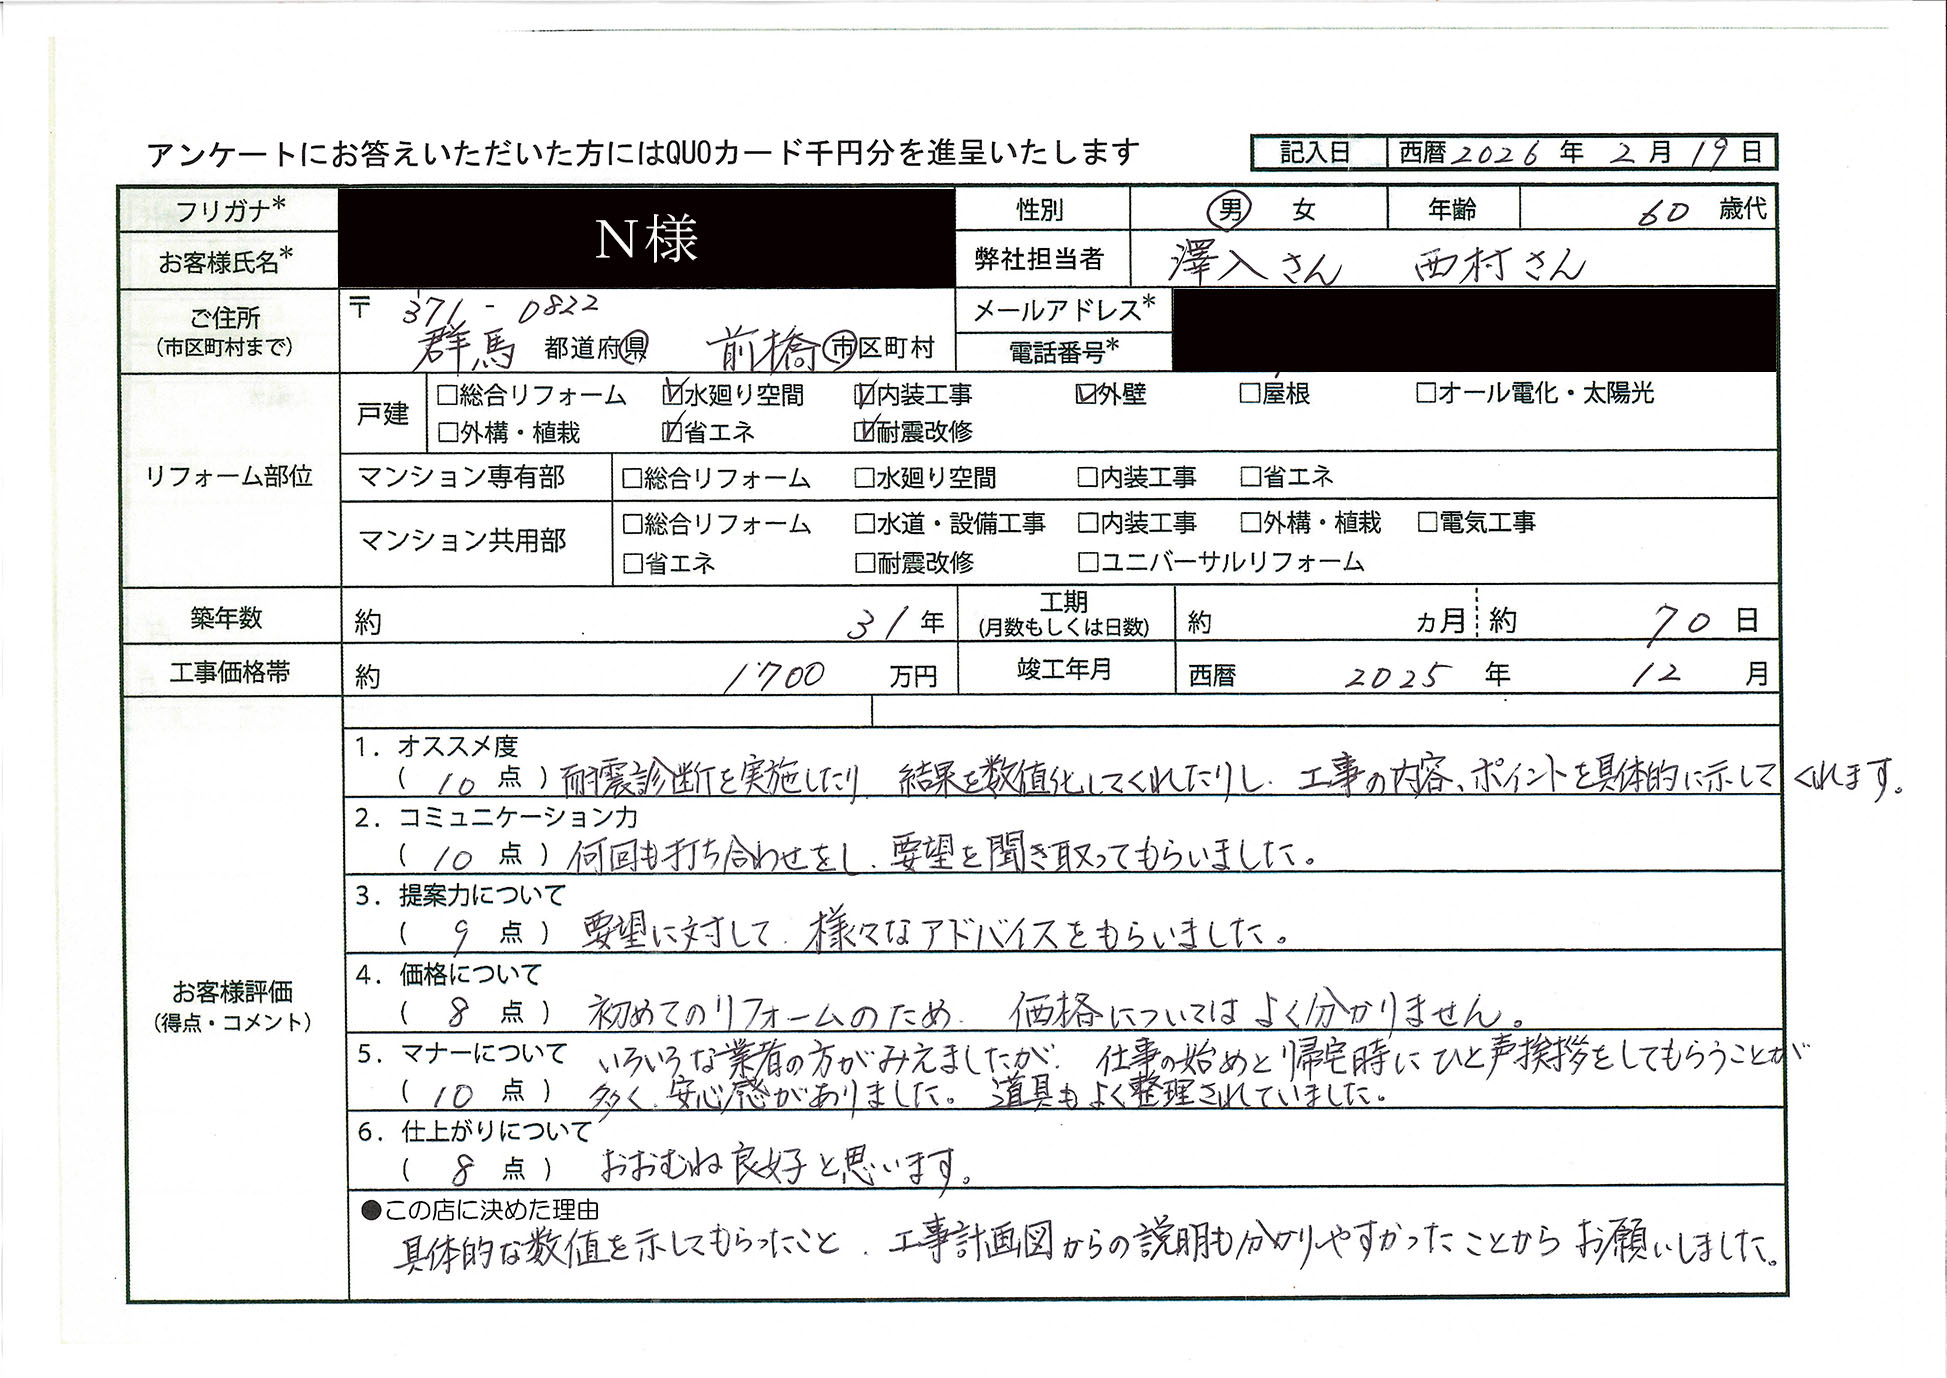 アンケートにお答えいただいた方にはQUOカード千円分を進呈いたします
記入日 西暦 2026 年 2 月 19 日
フリガナ* N様 性別 男 女 年齢 60 歳代
お客様氏名* 弊社担当者 澤入さん 西村さん
ご住所 (市区町村まで) 〒 371-0822 メールアドレス*
群馬 都道府県 前橋 市区町村 電話番号*
リフォーム部位
戸建 □総合リフォーム ☑水廻り空間 ☑内装工事 ☑外壁 □屋根 □オール電化・太陽光
□外構・植栽 ☑省エネ ☑耐震改修
マンション専有部 □総合リフォーム □水廻り空間 □内装工事 □省エネ
マンション共用部 □総合リフォーム □水道・設備工事 □内装工事 □外構・植栽 □電気工事
□省エネ □耐震改修 □ユニバーサルリフォーム
築年数 約 31 年 工期 (月数もしくは日数) 約 ヵ月 約 70 日
工事価格帯 約 1700 万円 竣工年月 西暦 2025 年 12 月
お客様評価 (得点・コメント)
1. オススメ度
( 10 点 ) 耐震診断を実施したり、結果を数値化してくれたりし、工事の内容、ポイントを具体的に示してくれます。
2. コミュニケーション力
( 10 点 ) 何回も打ち合わせをし、要望を聞き取ってもらいました。
3. 提案力について
( 9 点 ) 要望に対して、様々なアドバイスをもらいました。
4. 価格について
( 8 点 ) 初めてのリフォームのため、価格についてはよく分かりません。
5. マナーについて いろいろな業者の方がみえましたが、仕事の始めと帰宅時にひと声挨拶をしてもらうことが
( 10 点 ) 多く、安心感がありました。道具もよく整理されていました。
6. 仕上がりについて
( 8 点 ) おおむね良好と思います。
●この店に決めた理由
具体的な数値を示してもらったこと、工事計画図からの説明も分かりやすかったことからお願いしました。